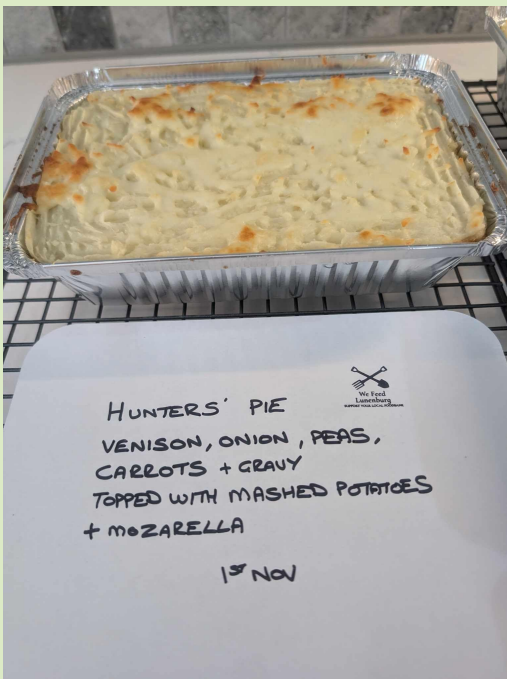 We Feed
Lunenburg
SUPPORT YOUR LOCAL FOODBANK
HUNTERS' PIE
VENISON, ONION, PEAS,
CARROTS + GRAVY
TOPPED WITH MASHED POTATOES
+ MOZARELLA
1ST NOV